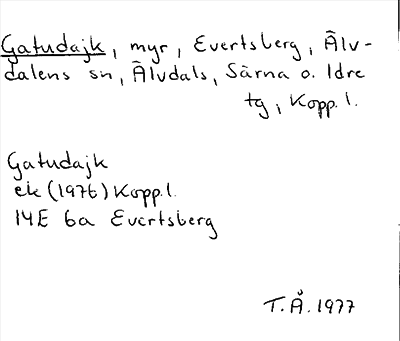 Gatudajk, myr, Evertsberg, Älv-
dalens sn, Älvdals, Särna o. Idre
tg, Kopp. l.
Gatudajk
ek (1976) Kopp. l.
14E 6a Evertsberg
T. Å. 1977